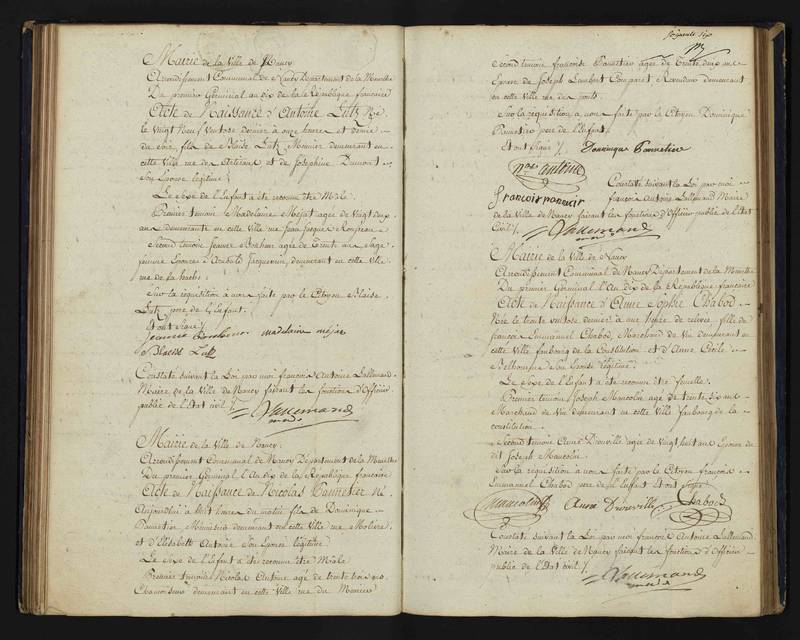 Mairie de la Ville de Nancy
Arrondissement Communal de Nancy Département de la Meurthe
Du premier Germinal an dix de la République francaise
Acte de Naissance d'Antoine Lutz Né
le Vingt Neuf Ventose dernier à onze heures et demie
du soir, fils de Blaise Lutz, Menuier demeurant en
cette Ville rue des et de Josephine Dumont
Son Epouse légitime
Le Sexe de l'Enfant a été reconnu être Mâle.
Premier témoin Madelaine Méjat agée de Vingt deux
ans demeurante en cette Ville rue Jean Jacques Rousseau
Second témoin Jeanne Bonheur agée de Trente ans Sage
femme Epouse d' Jacquemin, demeurant en cette Ville
rue de la hache.
Sur la réquisition à nous faite par le Citoyen Blaise
Lutz pere de l'Enfant.
et ont Signé
Jeanne Bonheur madelaine méjat
Blaise Lutz
Constaté suivant la Loi par moi françois Antoine Lallemand
Maire de la Ville de Nancy faisant les fonctions d'Officier
public de l'Etat civil ./.
Lallemand
Mairie de la Ville de Nancy.
Arrondissement Communal de Nancy Département de la Meurthe
Du premier Germinal l'An dix de la République francaise
Acte de Naissance de Nicolas Pannetier Né
Aujourdhui à huit heures du matin fils de Dominique
Pannetier, Menuisier demeurant en cette Ville rue Moliere
et d'Elisabeth Antoine Son Epouse légitime
Le Sexe de l'Enfant a été reconnu être Mâle
Premier témoin Nicolas Antoine agé de trente trois ans
demeurant en cette Ville rue du
soixante six
Second témoin françoise Pannetier agée de Trente deux ans
Epouse de Joseph Lambert Revendeur demeurant
en cette Ville rue des ponts.
Sur la réquisition à nous faite par le Citoyen Dominique
Pannetier pere de l'Enfant.
Et ont Signé ./. Dominique Pannetier
Nas antoine
Constaté suivant la Loi par moi
francois Antoine Lallemand Maire
de la Ville de Nancy faisant les fonctions d'Officier public de l'Etat
Civil ./.
Lallemand
Mairie de la Ville de Nancy
Arrondissement Communal de Nancy Département de la Meurthe
Du premier Germinal l'An dix de la République francaise
Acte de Naissance d'Anne Sophie Chabod
Née le trente ventose dernier à une heure de relevée fille de
françois Emmanuel Chabod, Marchand de Vin demeurant en
cette Ville faubourg de la Constitution et d'Anne Cecile
Son Epouse légitime
Le Sexe de l'Enfant a été reconnu être femelle.
Premier témoin Joseph Mancolin agé de trente six ans
Marchand de Vin demeurant en cette Ville faubourg de la
constitution
Second témoin Anne Drouville agée de Vingt huit ans Epouse du
dit Joseph Mancolin
Sur la réquisition à nous faite par le Citoyen francois
Emmanuel Chabod pere de l'Enfant et ont Signé
Mancolin Anne Drouville Chabod
Constaté suivant la Loi par moi francois Antoine Lallemand
Maire de la Ville de Nancy faisant les fonctions d'Officier
public de l'Etat civil ./.
Lallemand